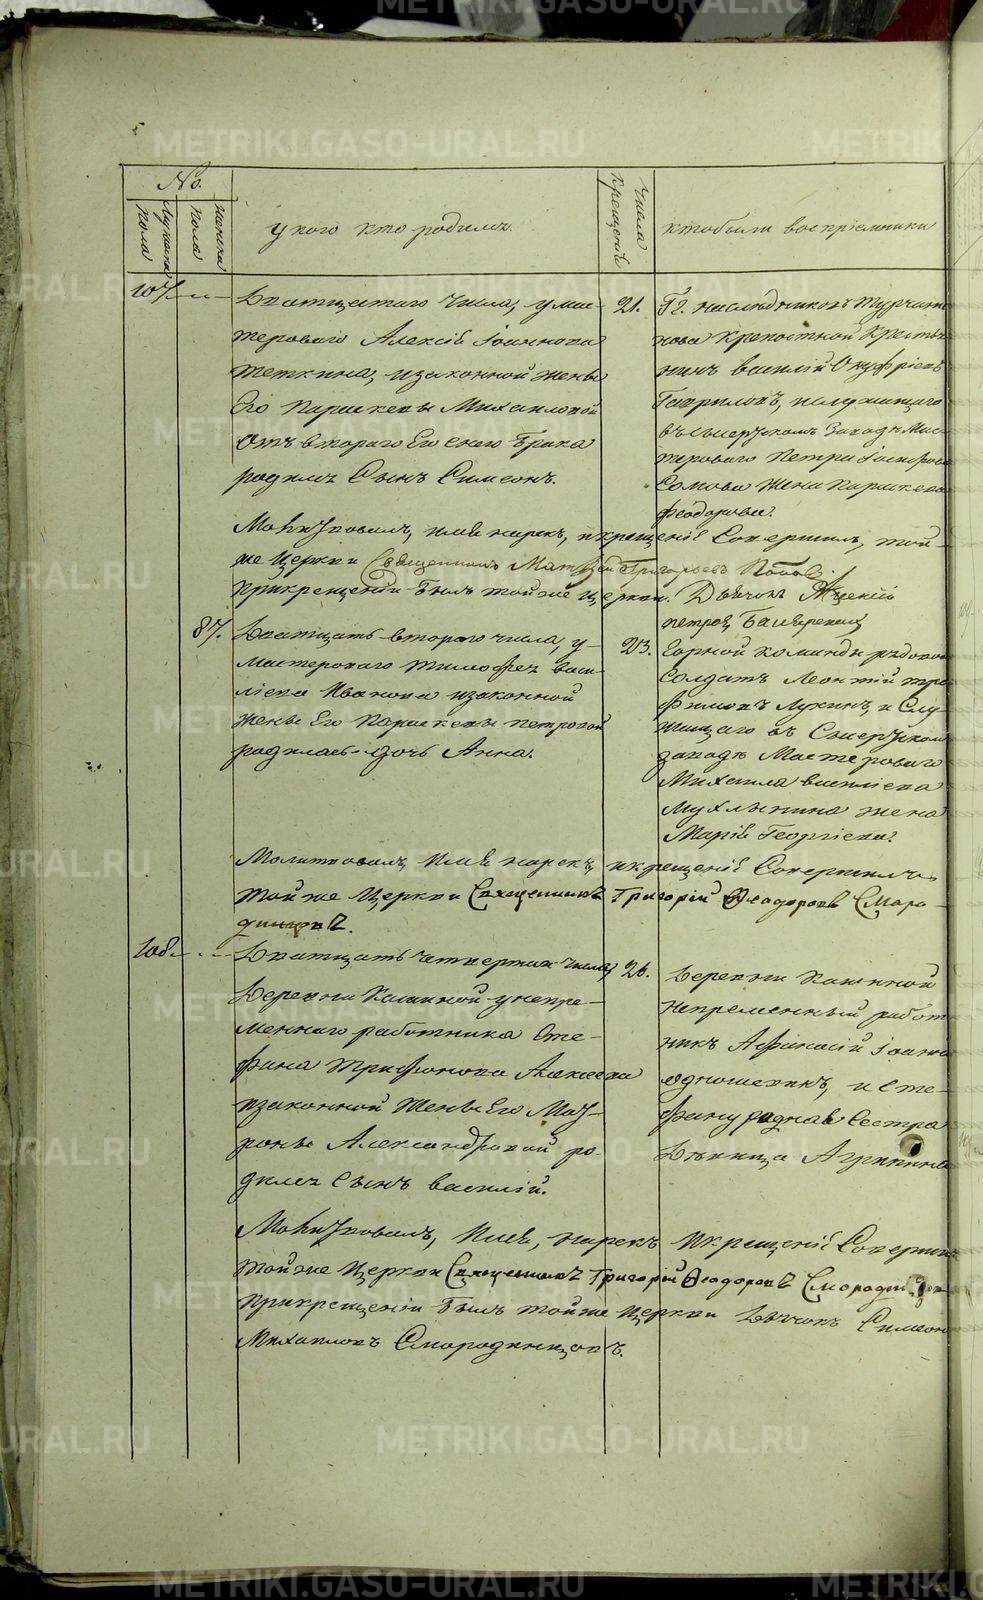 METRIKI.GASO-URAL.RU
№.
Мужеска пола
Женска пола
у кого кто родилъ.
Числа крещенiѣ
кто были воспрiемники
107.
Дватцатаго числа, у мас-
тероваго Алексiѣ Iоаннова
Теткина, и законной жены
Его Параскевы Михаиловой
отъ втораго Ея съ нею брака
родился Сынъ Симеонъ.
21.
Гг. наслѣдниковъ Турчани
нова крепостной Крестья
нинъ василiй Онуфрiевъ
Гавриловъ, и служащаго
въ Сысертскомъ Заводѣ Мас
тероваго Петра Iосифова
Сомова Жена Параскева
феодорова.
Молитвовалъ, имя нарекъ, и крещенiе Совершилъ, той
же Церкви Священникъ Матфей Григорьевъ Поповъ.
При крещенiи былъ той же Церкви. Дьячокъ
петровъ
87.
Дватцать втораго числа, у
мастероваго Тимофея Васи-
лiева Иванова и законной
жены Его Параскевы петровой
родилась дочь Анна.
23.
Горной команды рѣдовой
Солдатъ Леонтiй тро
фимовъ Лукинъ, и Слу
жащаго въ Сысертскомъ
заводѣ Мастероваго
Михаила василiева
Мухлынина жена
Марiѣ Георгiева.
Молитвовалъ, имя нарекъ, и крещенiе Совершилъ
той же Церкви Священникъ Григорiй Феодоровъ Смаро-
динцовъ.
108.
Дватцать четвертаго числа,
Деревни Кашиной у непре-
меннаго работника Сте-
фана Трифонова Алексеева
и законной Жены Его Мат-
роны Александровой ро-
дился Сынъ василiй.
26.
Деревни Кашиной
непременный работ
никъ Афанасiй Iоанно
одношевинъ, и Сте-
фану родная Сестра
Дѣвица Агрипина
Молитвовалъ, Имя, нарекъ и крещенiе Совершилъ
той же Церкви Священникъ Григорiй Феодоровъ Смородин
При крещенiи былъ той же Церкви Дьячокъ Симеон
Михаиловъ Смородинцовъ.